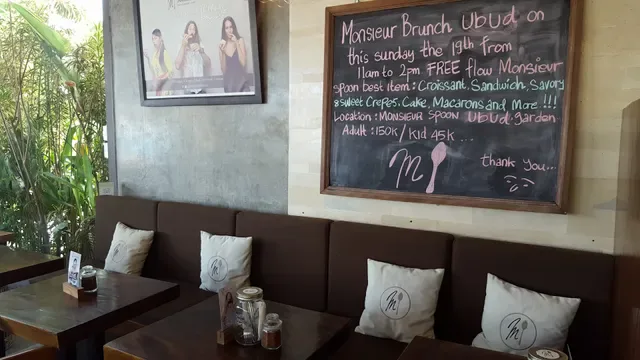 Monsieur Brunch Ubud on
this sunday the 19th from
11am to 2pm FREE flow Monsieur
spoon best item : Croissant, Sandwich, Savory
& sweet Crepes, Cake, Macarons and More !!!
Location : MONSIEUR SPOON UBUD. garden
Adult : 150K / Kid 45K ...
M
thank you...
M
M
M
M